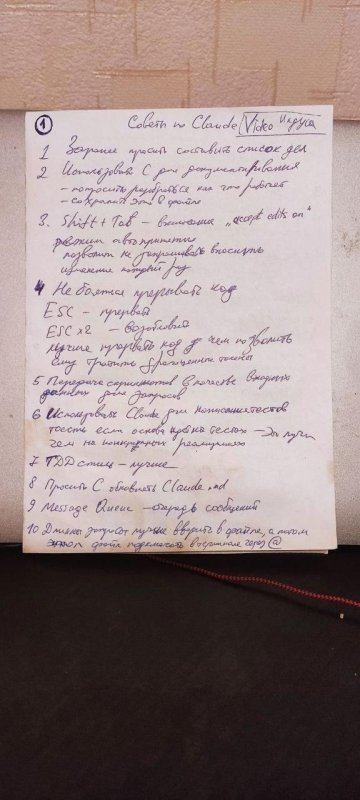 1 Советы по Claude Video Индуса
1 Заранее просить составить список дел
2 Использовать C для документирования
- попросить разобраться как что работает
- сохранить это в файле
3. Shift + Tab - включение "accept edits on"
режим автопринятия
позволит не запрашивать вносить
изменения каждый раз
4 Не бояться прерывать код
ESC - прервать
ESC x2 - возобновить
лучше прервать код до чем позволить
ему тратить драгоценные токены
5 Передача скриншотов в качестве входных
данных для запросов
6 Использовать Claude для написания тестов
тесты если основ на тестах - это лучше
чем на конкретных реализациях
7 TDD стиль - лучше
8 Просить C обновлять Claude.md
9 Message Queue - очередь сообщений
10 Длинные запросы лучше вводить в файле, а потом
файл подключать в терминале через @